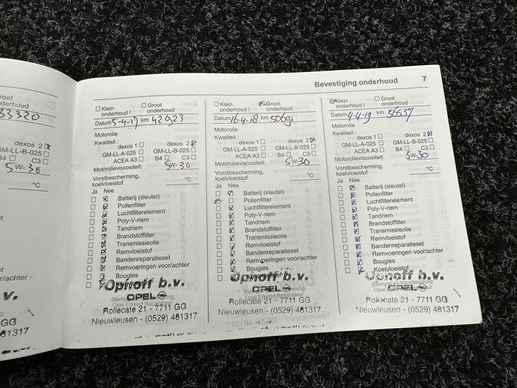 Groot
onderhoud
33320
dexos 2
GM-LL-B-025
C3
5W-30
°C
Bevestiging onderhoud 7
Klein onderhoud / Groot onderhoud
Datum 5-4-17 km 42023
Motorolie
Kwaliteit
dexos 1 dexos 2
GM-LL-A-025 GM-LL-B-025
ACEA A3 B4 C3
Motorolieviscositeit: 5W-30
Vorstbescherming,
koelvloeistof °C
Ja Nee
Batterij (sleutel)
Pollenfilter
Luchtfilterelement
Poly-V-riem
Tandriem
Brandstoffilter
Transmissieolie
Remvloeistof
Bandenreparatieset
Remvoeringen voor/achter
Bougies
Ophoff b.v.
OPEL
Rollecate 21 - 7711 GG
Nieuwleusen - (0529) 481317
Klein onderhoud / Groot onderhoud
Datum 16-4-18 km
Motorolie
Kwaliteit
dexos 1 dexos 2
GM-LL-A-025 GM-LL-B-025
ACEA A3 B4 C3
Motorolieviscositeit: 5W30
Vorstbescherming,
koelvloeistof °C
Ja Nee
Batterij (sleutel)
Pollenfilter
Luchtfilterelement
Poly-V-riem
Tandriem
Brandstoffilter
Transmissieolie
Remvloeistof
Bandenreparatieset
Remvoeringen voor/achter
Bougies
Ophoff b.v.
OPEL
Rollecate 21 - 7711 GG
Nieuwleusen - (0529) 481317
Klein onderhoud / Groot onderhoud
Datum 4-4-19 km 56537
Motorolie
Kwaliteit
dexos 1 dexos 2
GM-LL-A-025 GM-LL-B-025
ACEA A3 B4 C3
Motorolieviscositeit: 5W30
Vorstbescherming,
koelvloeistof °C
Ja Nee
Batterij (sleutel)
Pollenfilter
Luchtfilterelement
Poly-V-riem
Tandriem
Brandstoffilter
Transmissieolie
Remvloeistof
Bandenreparatieset
Remvoeringen voor/achter
Bougies
Koelvloeistof
Ophoff b.v.
OPEL
Rollecate 21 - 7711 GG
Nieuwleusen - (0529) 481317
achter
v.
GG
481317